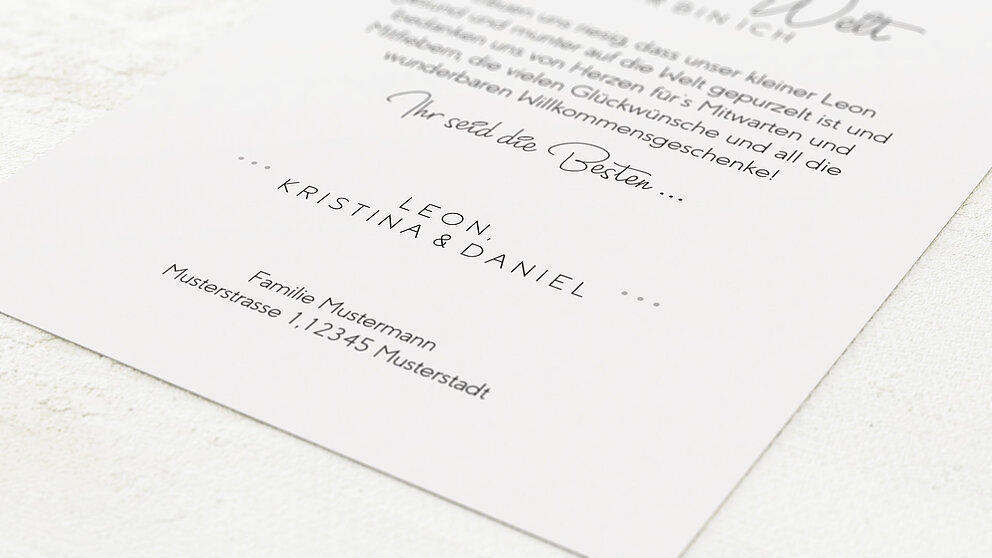 Welt
BIN ICH
uns riesig, dass unser kleiner Leon
gesund und munter auf die Welt gepurzelt ist und
bedanken uns von Herzen für's Mitwarten und
Mitfiebern, die vielen Glückwünsche und all die
wunderbaren Willkommensgeschenke!
Ihr seid die Besten ...
LEON,
KRISTINA & DANIEL
Familie Mustermann
Musterstrasse 1, 12345 Musterstadt